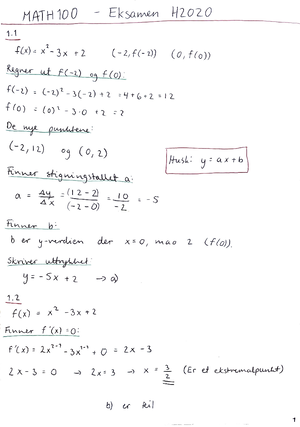 MATH100 - Eksamen H2020
1.1
f(x) = x² - 3x + 2 (-2, f(-2)) (0, f(0))
Regner ut f(-2) og f(0):
f(-2) = (-2)² - 3(-2) + 2 = 4 + 6 + 2 = 12
f(0) = (0)² - 3·0 + 2 = 2
De nye punktene:
(-2, 12) og (0, 2)
Husk: y = ax + b
Finner stigningstallet a:
a = Δy/Δx = (12-2)/(-2-0) = 10/-2 = -5
Finner b:
b er y-verdien der x=0, mao 2 (f(0)).
Skriver uttrykket:
y = -5x + 2 → a)
1.2
f(x) = x² - 3x + 2
Finner f'(x) = 0:
f'(x) = 2x²⁻¹ - 3x¹⁻¹ + 0 = 2x - 3
2x - 3 = 0 → 2x = 3 → x = 3/2 (Er et ekstremalpunkt)
b) er feil
1